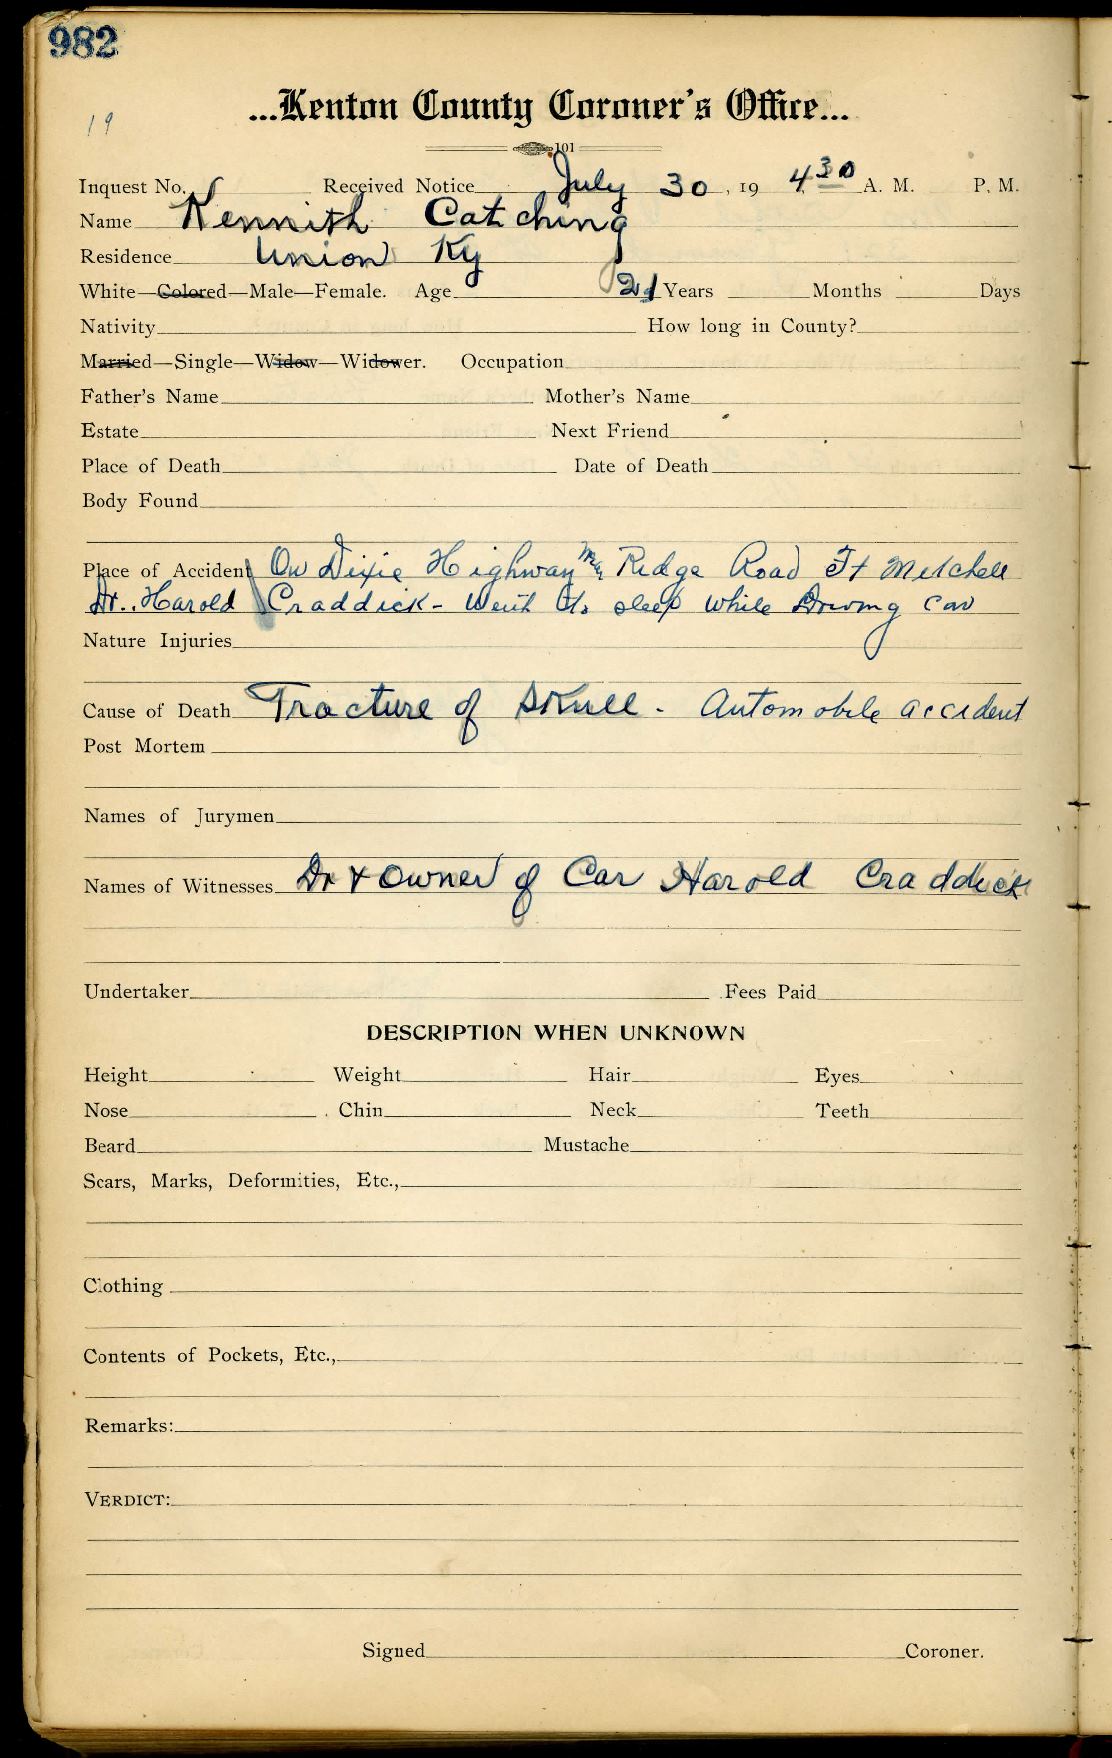 982
19
...Kenton County Coroner's Office...
101
Inquest No. Received Notice July 30, 19 4 30 A. M. P. M.
Name Kennith Catching
Residence Union Ky
White—Colored—Male—Female. Age 21 Years Months Days
Nativity How long in County?
Married—Single—Widow—Widower. Occupation
Father's Name Mother's Name
Estate Next Friend
Place of Death Date of Death
Body Found
Place of Accident On Dixie Highway Ridge Road Ft Mitchell
Dr.. Harold Craddick - Went to sleep while Driving car
Nature Injuries
Cause of Death Fracture of Skull - Automobile accident
Post Mortem
Names of Jurymen
Names of Witnesses Dr & Owner of Car Harold Craddick
Undertaker Fees Paid
DESCRIPTION WHEN UNKNOWN
Height Weight Hair Eyes
Nose Chin Neck Teeth
Beard Mustache
Scars, Marks, Deformities, Etc.,
Clothing
Contents of Pockets, Etc.,
Remarks:
VERDICT:
Signed Coroner.